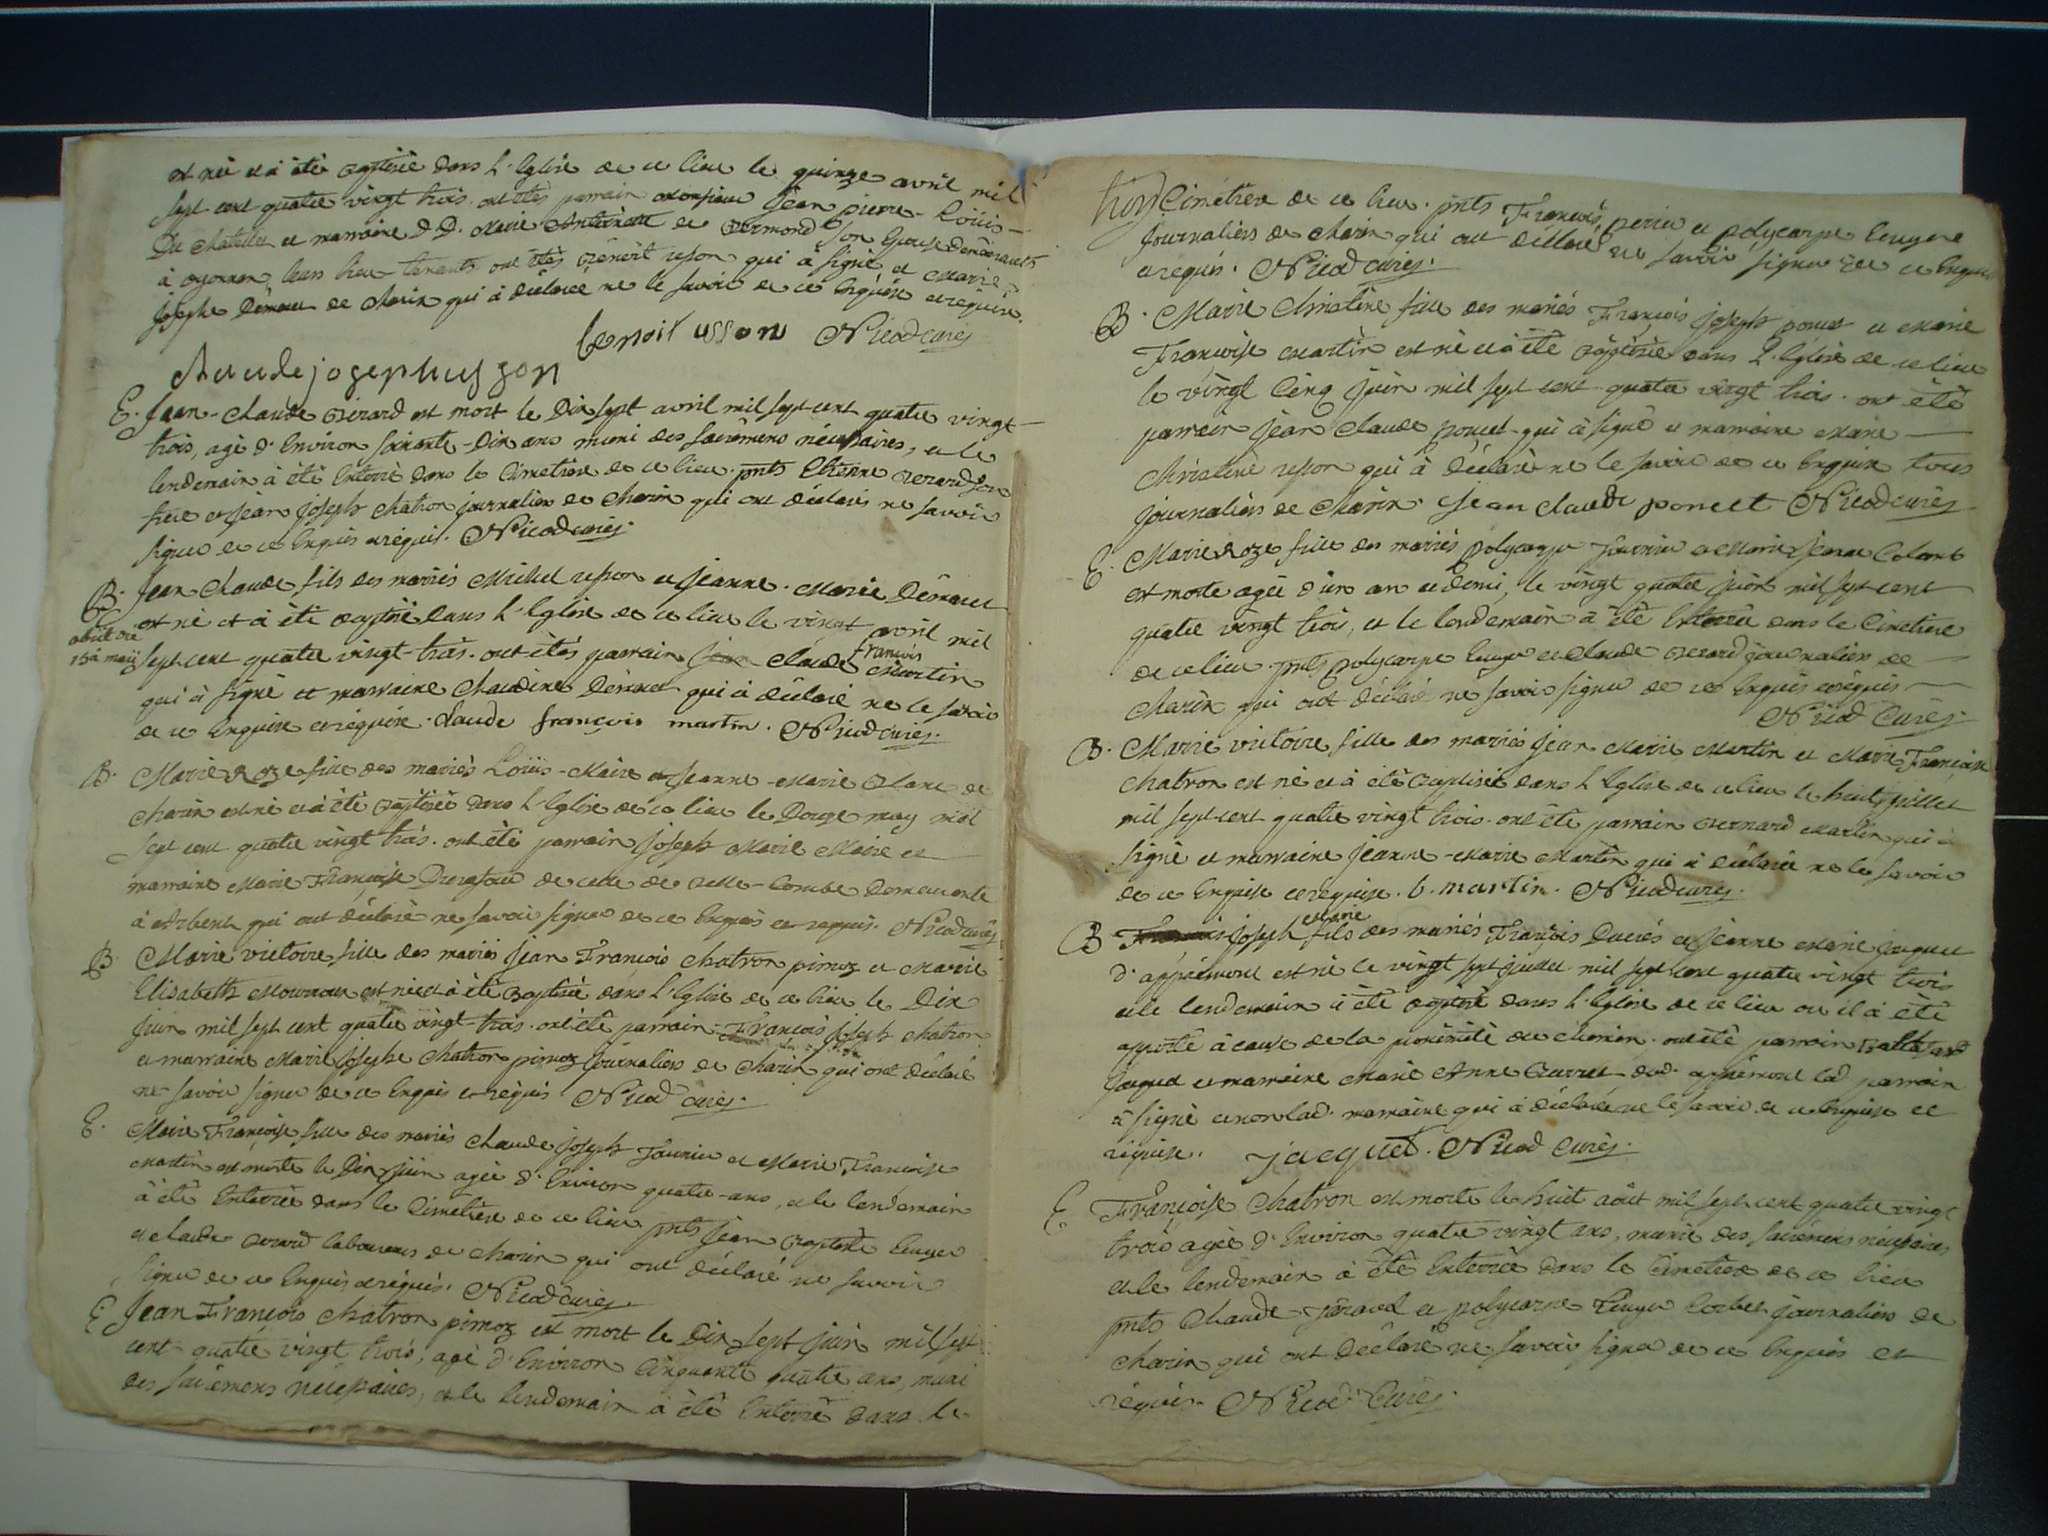 est né et à été Baptisé dans l'Eglise de ce lieu le quinze avril mil
sept cent quatre vingt trois. ont étés parrain monsieur Jean pierre-Loüis-
Du Chatelier et marraine D.D. Marie Antoinette de Bermond son Epouse demeurants
à oyonnax leurs lieu-tenants ont étés Benoit usson qui à signé et Marie
Josephe Démoux de Charix qui à déclaré ne le savoir de ce Enquise et requise.
benoit usson Nicod curés
Claude joseph huszon
E. Jean-Claude Berard est mort le Dix sept avril mil sept cent quatre vingt
trois, agé d'Environ soixante-Dix ans muni des sacrêmens nécessaires, et le
lendemain à été Enterré dans le Cimetière de ce lieu. pnts Etienne Berard son
frère et Jean Joseph Chatron journaliers de Charix qui ont déclarés ne savoir
signer de ce Enquis et requis. Nicod curés.
B. Jean Claude fils des mariés Michel usson et Jeanne-Marie Démoux
est né et à été Baptisé dans l'Eglise de ce lieu le vingt avril mil
sept cent quatre vingt-trois. ont étés parrain Claude françois Martin
qui à signé et marraine Claudine Démoux qui à déclaré ne le savoir
de ce Enquise et requise. Claude françois martin. Nicod curés.
B. Marie Roze fille des mariés Loüis-Maire et Jeanne-Marie Blanc de
Charix est né et à été Baptisée dans l'Eglise de ce lieu le Douze may mil
sept cent quatre vingt trois. ont été parrain Joseph Marie Maire et
marraine Marie Françoise de celle de Belle-Combe Demeurante
à Arbent qui ont déclaré ne savoir signer de ce Enquis et requis. Nicod curés
B. Marie victoire fille des mariés Jean François Chatron pirnoz et Marie
Elisabeth est née et à été Baptisée dans l'Eglise de ce lieu le Dix
Juin mil sept cent quatre vingt-trois. ont été parrain François Joseph Chatron
et marraine Marie Josephe Chatron pirnoz journaliers de Charix qui ont déclaré
ne savoir signer de ce Enquis et requis Nicod curés.
E. Marie Françoise fille des mariés Claude Joseph Fournier et Marie Françoise
Martin est morte le Dix Juin agée d'Environ quatre-ans, et le lendemain
à été Enterrée dans le Cimetière de ce lieu pnts Jean Baptiste
et Claude Berard laboureurs de Charix qui ont déclaré ne savoir
signer de ce Enquis et requis. Nicod curés.
E. Jean François Chatron pirnoz est mort le Dix sept Juin mil sept
cent quatre vingt trois, agé d'Environ Cinquante quatre ans, muni
des sacrêmens nécessaires, et le lendemain à été Enterré dans le
Cimetière de ce lieu. pnts François perin et polycarpe Eugene
journaliers de Charix qui ont déclaré ne savoir signer de ce Enquis
et requis. Nicod curés.
B. Marie Christine fille des mariés François Joseph poncet et Marie
Françoise Martin est né et à été Baptisée dans l'Eglise de ce lieu
le vingt Cinq Juin mil sept cent quatre vingt trois. ont été
parrain Jean Claude poncet qui à signé et marraine Marie
Christine usson qui à déclaré ne le savoir de ce Enquise tous
journaliers de Charix. Jean Claude poncet Nicod curés
E. Marie Roze fille des mariés polycarpe Fournier et Marie Jeanne
est morte agée d'un an et demi, le vingt quatre juin mil sept cent
quatre vingt trois, et le lendemain à été Enterrée dans le Cimetière
de ce lieu. pnts polycarpe et Claude Berard journaliers de
Charix qui ont déclaré ne savoir signer de ce Enquis et requis
Nicod Curés.
B. Marie victoire fille des mariés Jean Marie Martin et Marie Françoise
Chatron est né et à été Baptisée dans l'Eglise de ce lieu le huit juillet
mil sept cent quatre vingt trois. ont été parrain Bernard Martin qui à
signé et marraine Jeanne-Marie Martin qui à déclaré ne le savoir
de ce Enquise et requise. b. martin. Nicod curés.
B. Joseph Marie fils des mariés François Ducrés et Jeanne Marie Jaquet
d'appremont est né le vingt sept juillet mil sept cent quatre vingt trois
et le lendemain à été Baptisé dans l'Eglise de ce lieu ou il à été
apporté à cause de la proximité du chemin. ont été parrain Balthazard
Jaquet et marraine Marie Anne dud. appremont led parrain
à signé et non lad. marraine qui à déclaré ne le savoir de ce Enquise et
requise. jacquet. Nicod Curés.
E. Françoise Chatron est morte le huit août mil sept cent quatre vingt
trois agée d'Environ quatre vingt ans, munie des sacrêmens nécessaires,
et le lendemain à été Enterrée dans le Cimetière de ce lieu
pnts Claude et polycarpe journaliers de
Charix qui ont déclaré ne savoir signer de ce Enquis et
requis. Nicod Curés.